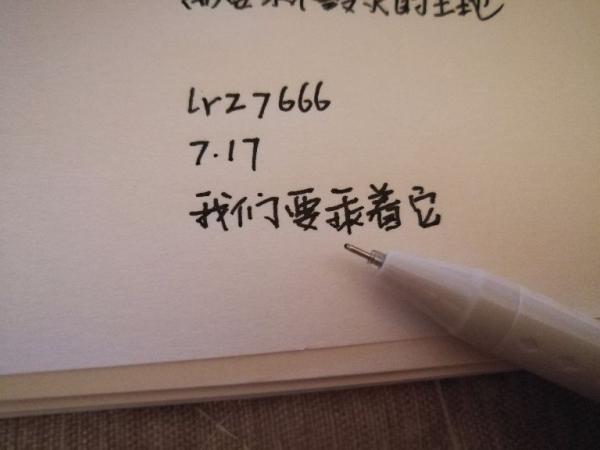 的土地
lrz7666
7.17
我们要乘着它